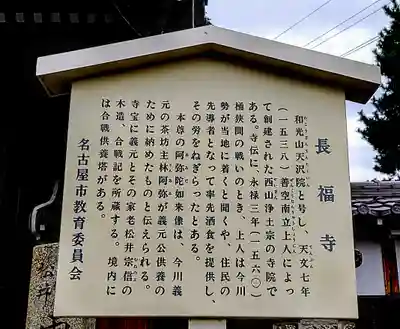 長福寺
和光山天沢院と号し、天文七年
(一五三八)善空南立上人によっ
て創建された西山浄土宗の寺院で
ある。寺伝に、永禄三年(一五六〇)
桶狭間の戦いのとき、上人は今川
勢が当地に着くと聞くや、住民の
先導者となって率先酒食を提供し、
その労をねぎらったとある。
本尊の阿弥陀如来像は、今川義
元の茶坊主林阿弥が義元公供養の
ために納めたものと伝えられる。
寺宝に義元とその家老松井宗信の
木造、合戦記を所蔵する。境内に
は合戦供養塔がある。
名古屋市教育委員会